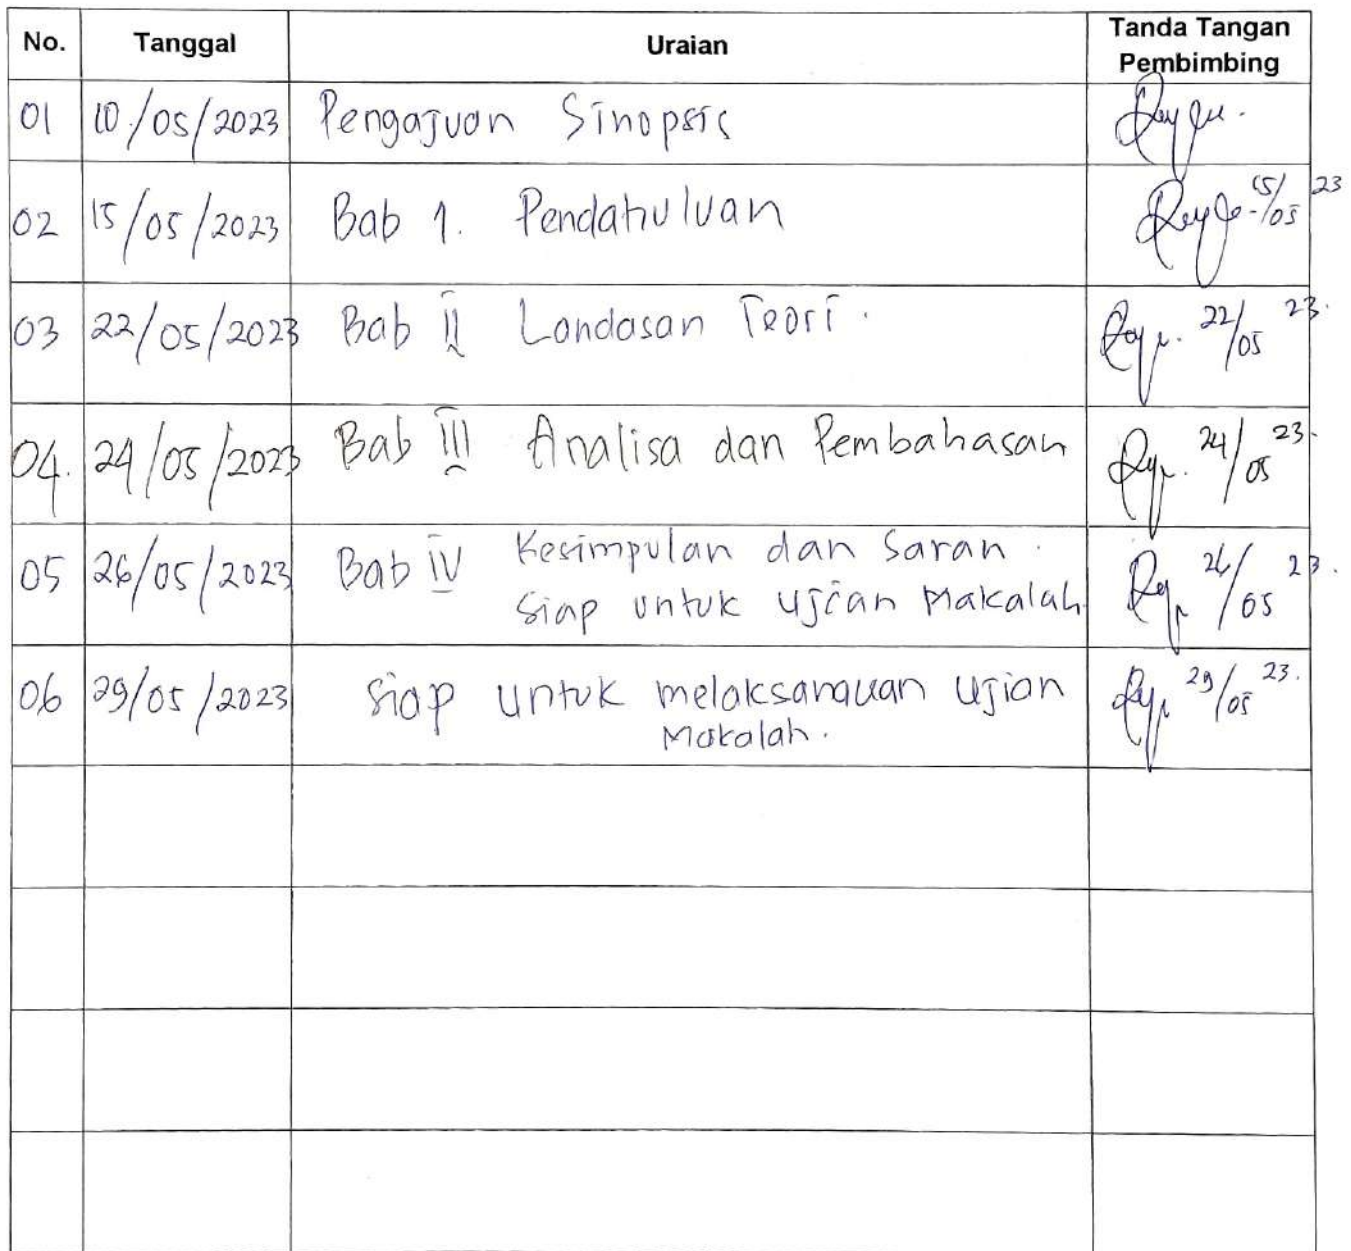 No. Tanggal Uraian Tanda Tangan
Pembimbing
01 10/05/2023 Pengajuan Sinopsis
02 15/05/2023 Bab 1. Pendahuluan 15/05 23
03 22/05/2023 Bab II Landasan Teori. 22/05 23.
04. 24/05/2023 Bab III Analisa dan Pembahasan 24/05 23.
05 26/05/2023 Bab IV Kesimpulan dan Saran. 26/05 23.
Siap untuk ujian Makalah
06 29/05/2023 Siap untuk melaksanakan ujian 29/05 23.
Makalah.